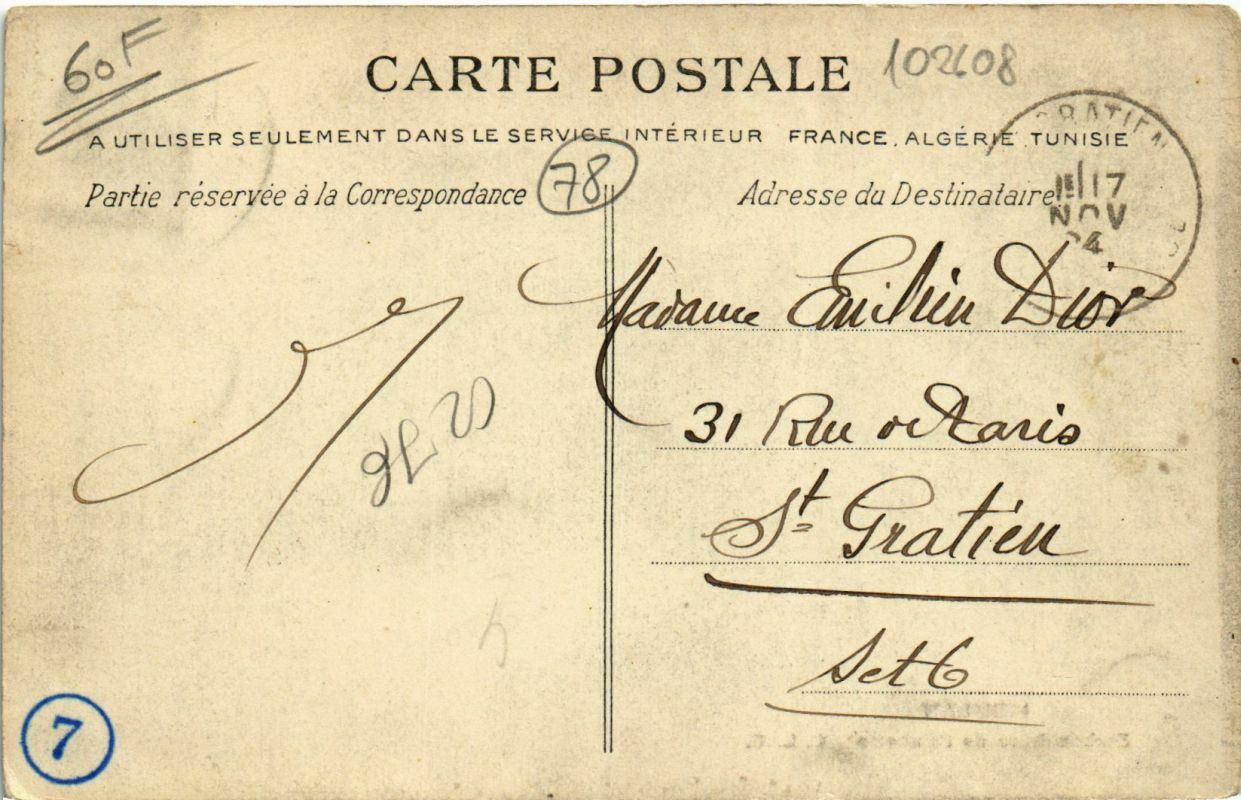 60F
CARTE POSTALE
102608
A UTILISER SEULEMENT DANS LE SERVICE INTÉRIEUR FRANCE, ALGÉRIE, TUNISIE
Partie réservée à la Correspondance
78
Adresse du Destinataire
GRATIEN
17
NOV
Madame Emilien Dior
31 Rue de Paris
St Gratien
Set O
7